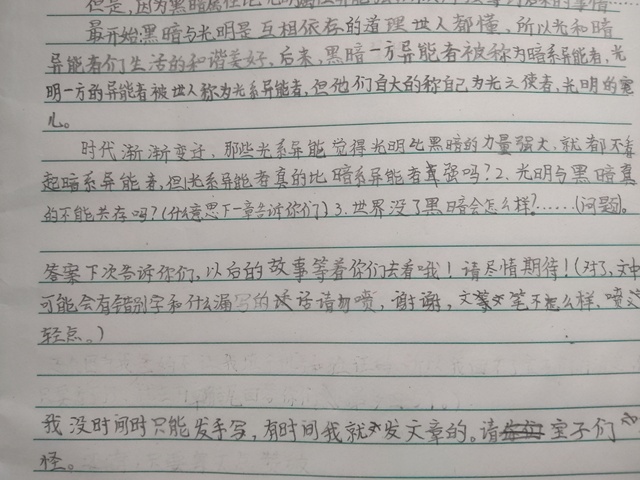 但是,因为黑暗属性
最开始黑暗与光明是互相依存的道理世人都懂,所以光和暗
异能者们生活的和谐美好,后来,黑暗一方异能者被称为暗系异能者,光
明一方的异能者被世人称为光系异能者,但他们自大的称自己为光之使者,光明的宠
儿。
时代渐渐变迁,那些光系异能觉得光明比黑暗的力量强大,就都不看
起暗系异能者,但光系异能者真的比暗系异能者强吗?2.光明与黑暗真
的不能共存吗?(什么意思下一章告诉你们)3.世界没了黑暗会怎么样?……(问题)。
答案下次告诉你们,以后的故事等着你们去看哦!请尽情期待!(对了,文中
可能会有错别字和什么漏写的话请勿喷,谢谢,文笔不怎么样,喷
轻点。)
我没时间时只能发手写,有时间我就发文章的。请宝子们勿
怪。